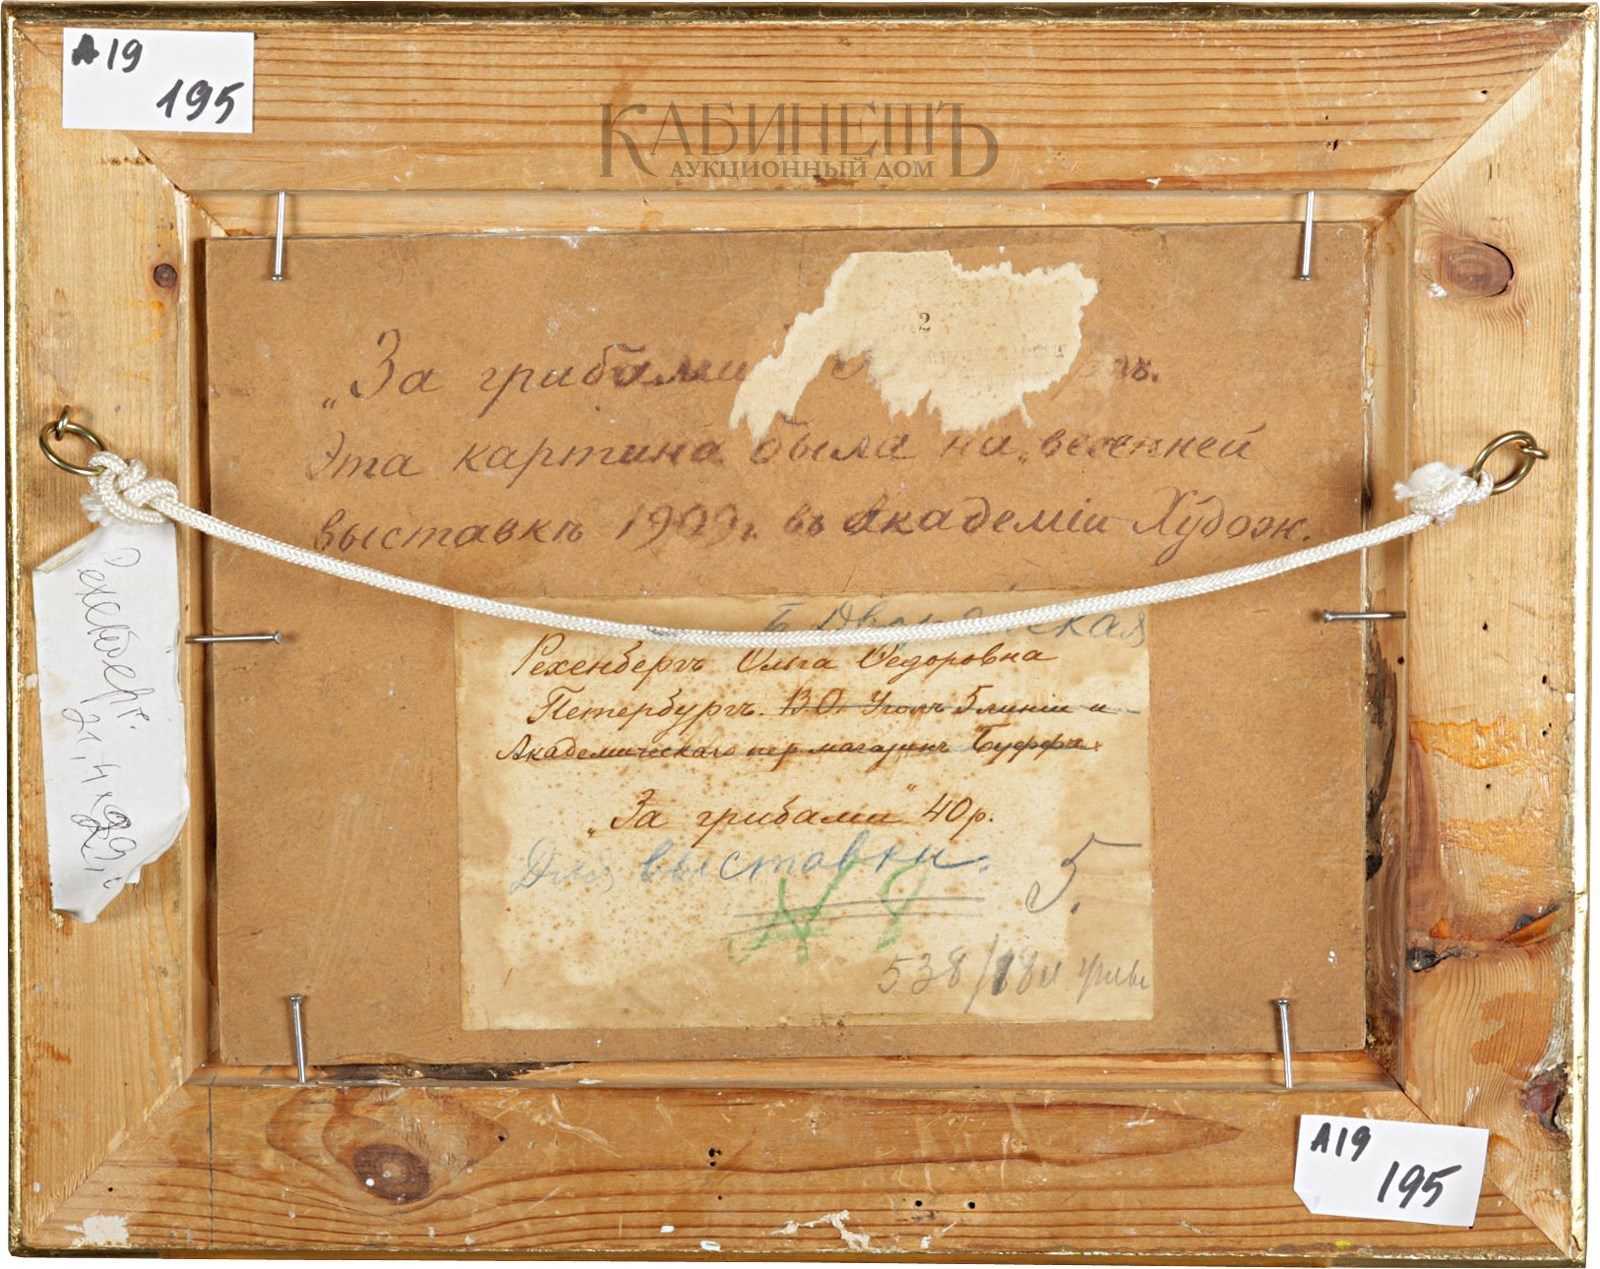 А19
195
КАБИНЕТЪ
АУКЦИОННЫЙ ДОМ
2
„За грибами
Эта картина была на „весенней
выставкѣ 1909 г. въ Академіи Худож.
Рехенберг.
21,4 x 29,
Б Дворянская
Рехенбергъ Ольга Ѳедоровна
Петербургъ. В О. Уголъ 5 линіи и
Академическаго пер магазинъ Буффа.
„За грибами" 40 р.
Для выставки.
48
5.
538/18
А19
195